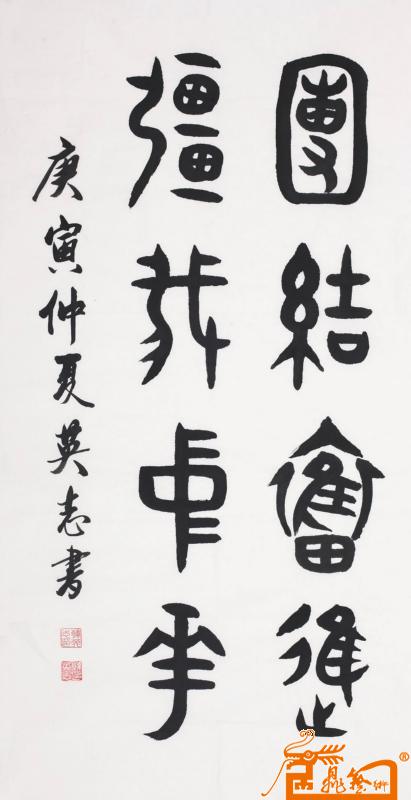 團結奮進
彊我中華
庚寅仲夏英志書